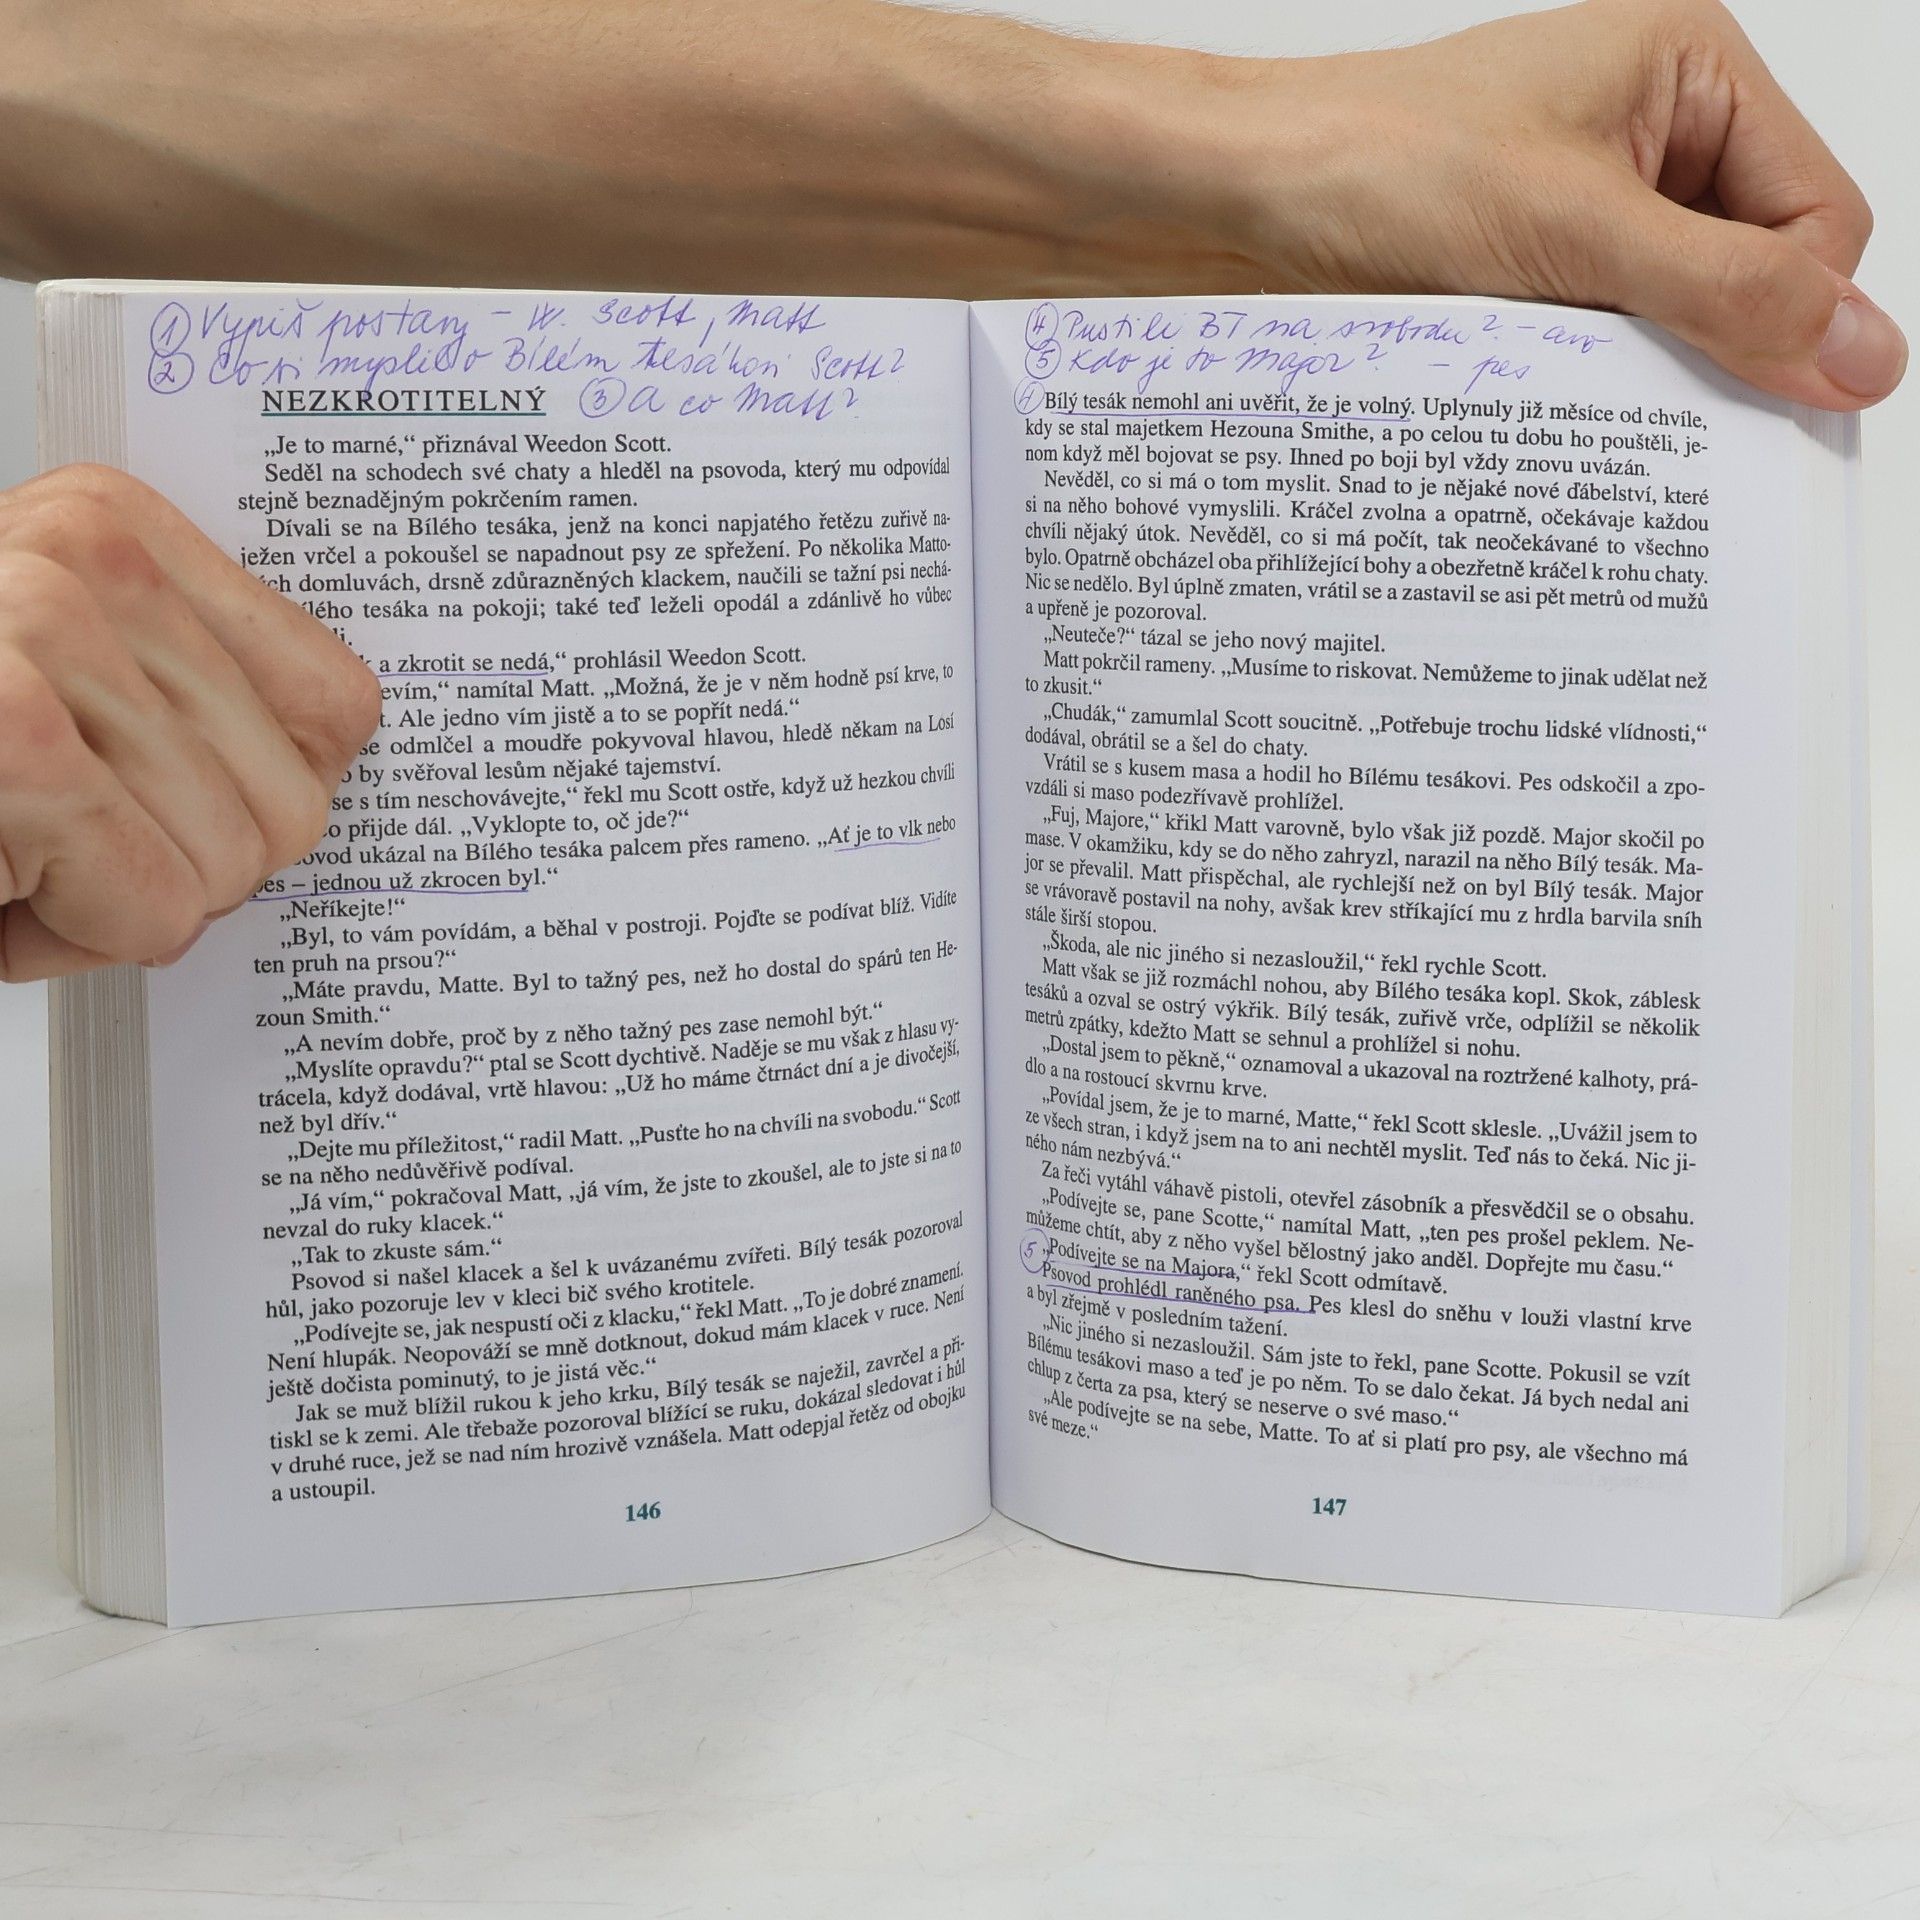 ① Vypiš postavy – W. Scott, Matt
② Co si myslel o Bílém tesákovi Scott?
NEZKROTITELNÝ ③ A co Matt?
„Je to marné,“ přiznával Weedon Scott.
Seděl na schodech své chaty a hleděl na psovoda, který mu odpovídal
stejně beznadějným pokrčením ramen.
Dívali se na Bílého tesáka, jenž na konci napjatého řetězu zuřivě na-
ježen vrčel a pokoušel se napadnout psy ze spřežení. Po několika Matto-
domluvách, drsně zdůrazněných klackem, naučili se tažní psi nechá-
tesáka na pokoji; také teď leželi opodál a zdánlivě ho vůbec
a zkrotit se nedá,“ prohlásil Weedon Scott.
namítal Matt. „Možná, že je v něm hodně psí krve, to
Ale jedno vím jistě a to se popřít nedá.“
se odmlčel a moudře pokyvoval hlavou, hledě někam na Losí
by svěřoval lesům nějaké tajemství.
se s tím neschovávejte,“ řekl mu Scott ostře, když už hezkou chvíli
přijde dál. „Vyklopte to, oč jde?“
ukázal na Bílého tesáka palcem přes rameno. „Ať je to vlk nebo
pes – jednou už zkrocen byl.“
„Neříkejte!“
„Byl, to vám povídám, a běhal v postroji. Pojďte se podívat blíž. Vidíte
ten pruh na prsou?“
„Máte pravdu, Matte. Byl to tažný pes, než ho dostal do spárů ten He-
zoun Smith.“
„A nevím dobře, proč by z něho tažný pes zase nemohl být.“
„Myslíte opravdu?“ ptal se Scott dychtivě. Naděje se mu však z hlasu vy-
trácela, když dodával, vrtě hlavou: „Už ho máme čtrnáct dní a je divočejší,
než byl dřív.“
„Dejte mu příležitost,“ radil Matt. „Pusťte ho na chvíli na svobodu.“ Scott
se na něho nedůvěřivě podíval.
„Já vím,“ pokračoval Matt, „já vím, že jste to zkoušel, ale to jste si na to
nevzal do ruky klacek.“
„Tak to zkuste sám.“
Psovod si našel klacek a šel k uvázanému zvířeti. Bílý tesák pozoroval
hůl, jako pozoruje lev v kleci bič svého krotitele.
„Podívejte se, jak nespustí oči z klacku,“ řekl Matt. „To je dobré znamení.
Není hlupák. Neopováží se mně dotknout, dokud mám klacek v ruce. Není
ještě dočista pominutý, to je jistá věc.“
Jak se muž blížil rukou k jeho krku, Bílý tesák se naježil, zavrčel a při-
tiskl se k zemi. Ale třebaže pozoroval blížící se ruku, dokázal sledovat i hůl
v druhé ruce, jež se nad ním hrozivě vznášela. Matt odepjal řetěz od obojku
a ustoupil.
146
④ Pustili BT na svobodu? – ano
⑤ Kdo je to Major? – pes
④ Bílý tesák nemohl ani uvěřit, že je volný. Uplynuly již měsíce od chvíle,
kdy se stal majetkem Hezouna Smithe, a po celou tu dobu ho pouštěli, je-
nom když měl bojovat se psy. Ihned po boji byl vždy znovu uvázán.
Nevěděl, co si má o tom myslit. Snad to je nějaké nové ďábelství, které
si na něho bohové vymyslili. Kráčel zvolna a opatrně, očekávaje každou
chvíli nějaký útok. Nevěděl, co si má počít, tak neočekávané to všechno
bylo. Opatrně obcházel oba přihlížející bohy a obezřetně kráčel k rohu chaty.
Nic se nedělo. Byl úplně zmaten, vrátil se a zastavil se asi pět metrů od mužů
a upřeně je pozoroval.
„Neuteče?“ tázal se jeho nový majitel.
Matt pokrčil rameny. „Musíme to riskovat. Nemůžeme to jinak udělat než
to zkusit.“
„Chudák,“ zamumlal Scott soucitně. „Potřebuje trochu lidské vlídnosti,“
dodával, obrátil se a šel do chaty.
Vrátil se s kusem masa a hodil ho Bílému tesákovi. Pes odskočil a zpo-
vzdáli si maso podezřívavě prohlížel.
„Fuj, Majore,“ křikl Matt varovně, bylo však již pozdě. Major skočil po
mase. V okamžiku, kdy se do něho zahryzl, narazil na něho Bílý tesák. Ma-
jor se převalil. Matt přispěchal, ale rychlejší než on byl Bílý tesák. Major
se vrávoravě postavil na nohy, avšak krev stříkající mu z hrdla barvila sníh
stále širší stopou.
„Škoda, ale nic jiného si nezasloužil,“ řekl rychle Scott.
Matt však se již rozmáchl nohou, aby Bílého tesáka kopl. Skok, záblesk
tesáků a ozval se ostrý výkřik. Bílý tesák, zuřivě vrče, odplížil se několik
metrů zpátky, kdežto Matt se sehnul a prohlížel si nohu.
„Dostal jsem to pěkně,“ oznamoval a ukazoval na roztržené kalhoty, prá-
dlo a na rostoucí skvrnu krve.
„Povídal jsem, že je to marné, Matte,“ řekl Scott sklesle. „Uvážil jsem to
ze všech stran, i když jsem na to ani nechtěl myslit. Teď nás to čeká. Nic ji-
ného nám nezbývá.“
Za řeči vytáhl váhavě pistoli, otevřel zásobník a přesvědčil se o obsahu.
„Podívejte se, pane Scotte,“ namítal Matt, „ten pes prošel peklem. Ne-
můžeme chtít, aby z něho vyšel bělostný jako anděl. Dopřejte mu času.“
⑤ „Podívejte se na Majora,“ řekl Scott odmítavě.
Psovod prohlédl raněného psa. Pes klesl do sněhu v louži vlastní krve
a byl zřejmě v posledním tažení.
„Nic jiného si nezasloužil. Sám jste to řekl, pane Scotte. Pokusil se vzít
Bílému tesákovi maso a teď je po něm. To se dalo čekat. Já bych nedal ani
chlup z čerta za psa, který se neserve o své maso.“
„Ale podívejte se na sebe, Matte. To ať si platí pro psy, ale všechno má
své meze.“
147